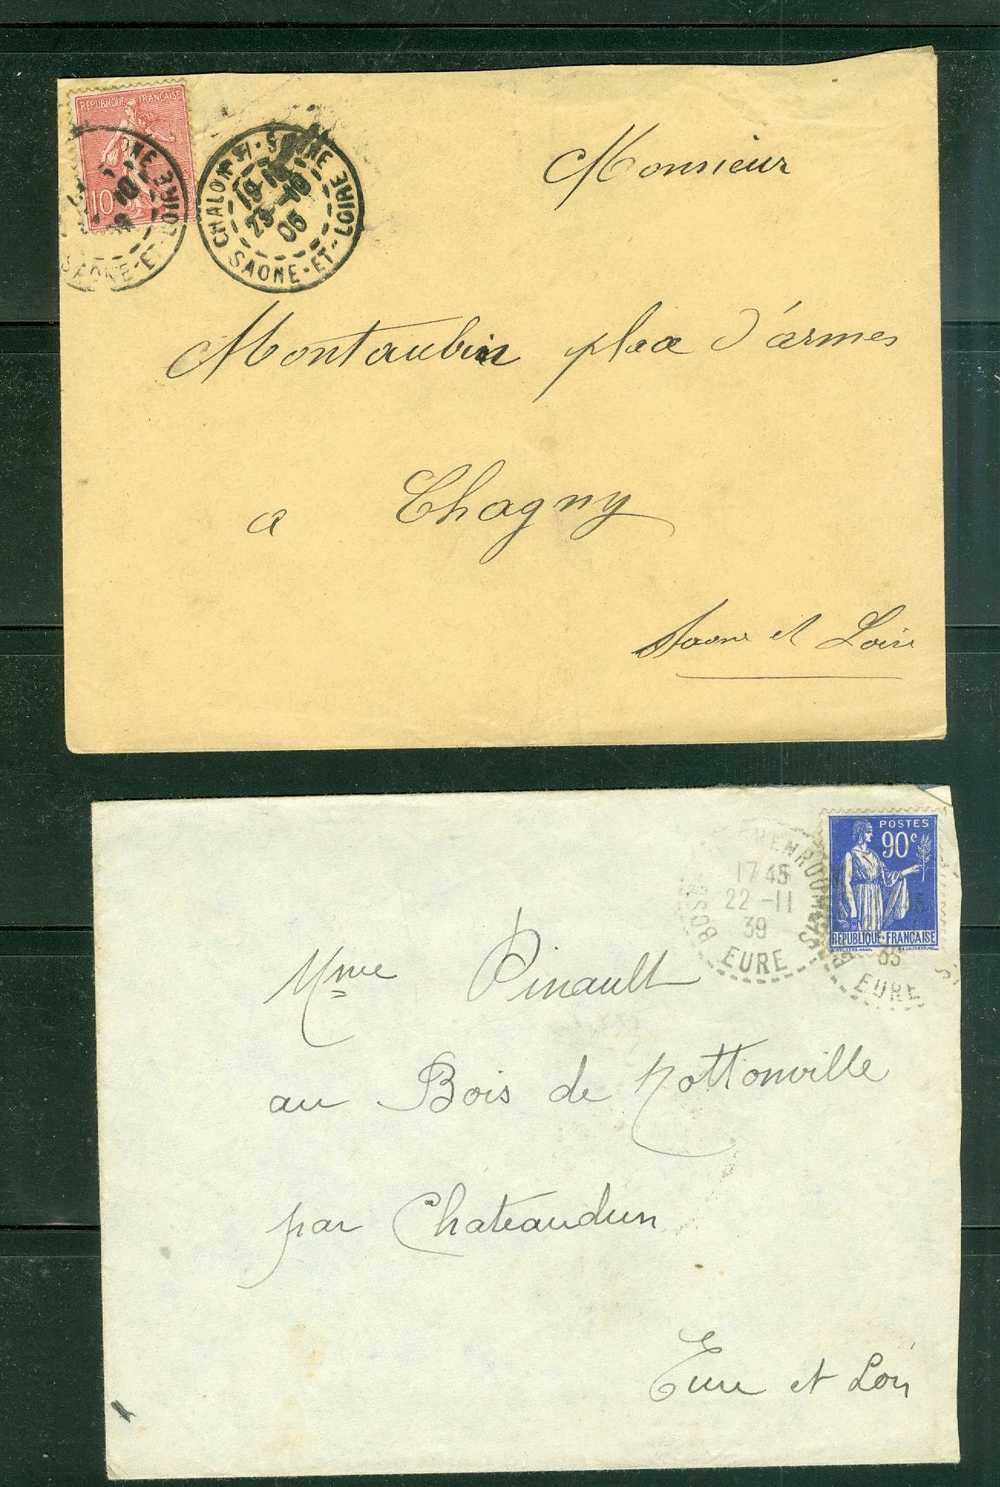 REPUBLIQUE FRANÇAISE
10
SAONE-ET-LOIRE
CHALON S/-SAONE
19 15
23-10
05
SAONE-ET-LOIRE
Monsieur
Montaubin place d'armes
a Chagny
Saone et Loire
POSTES
90c
REPUBLIQUE-FRANÇAISE
17 45
22-11
39
EURE
EURE
Mme Pinault
au Bois de Nottonville
par Chateaudun
Eure et Loir